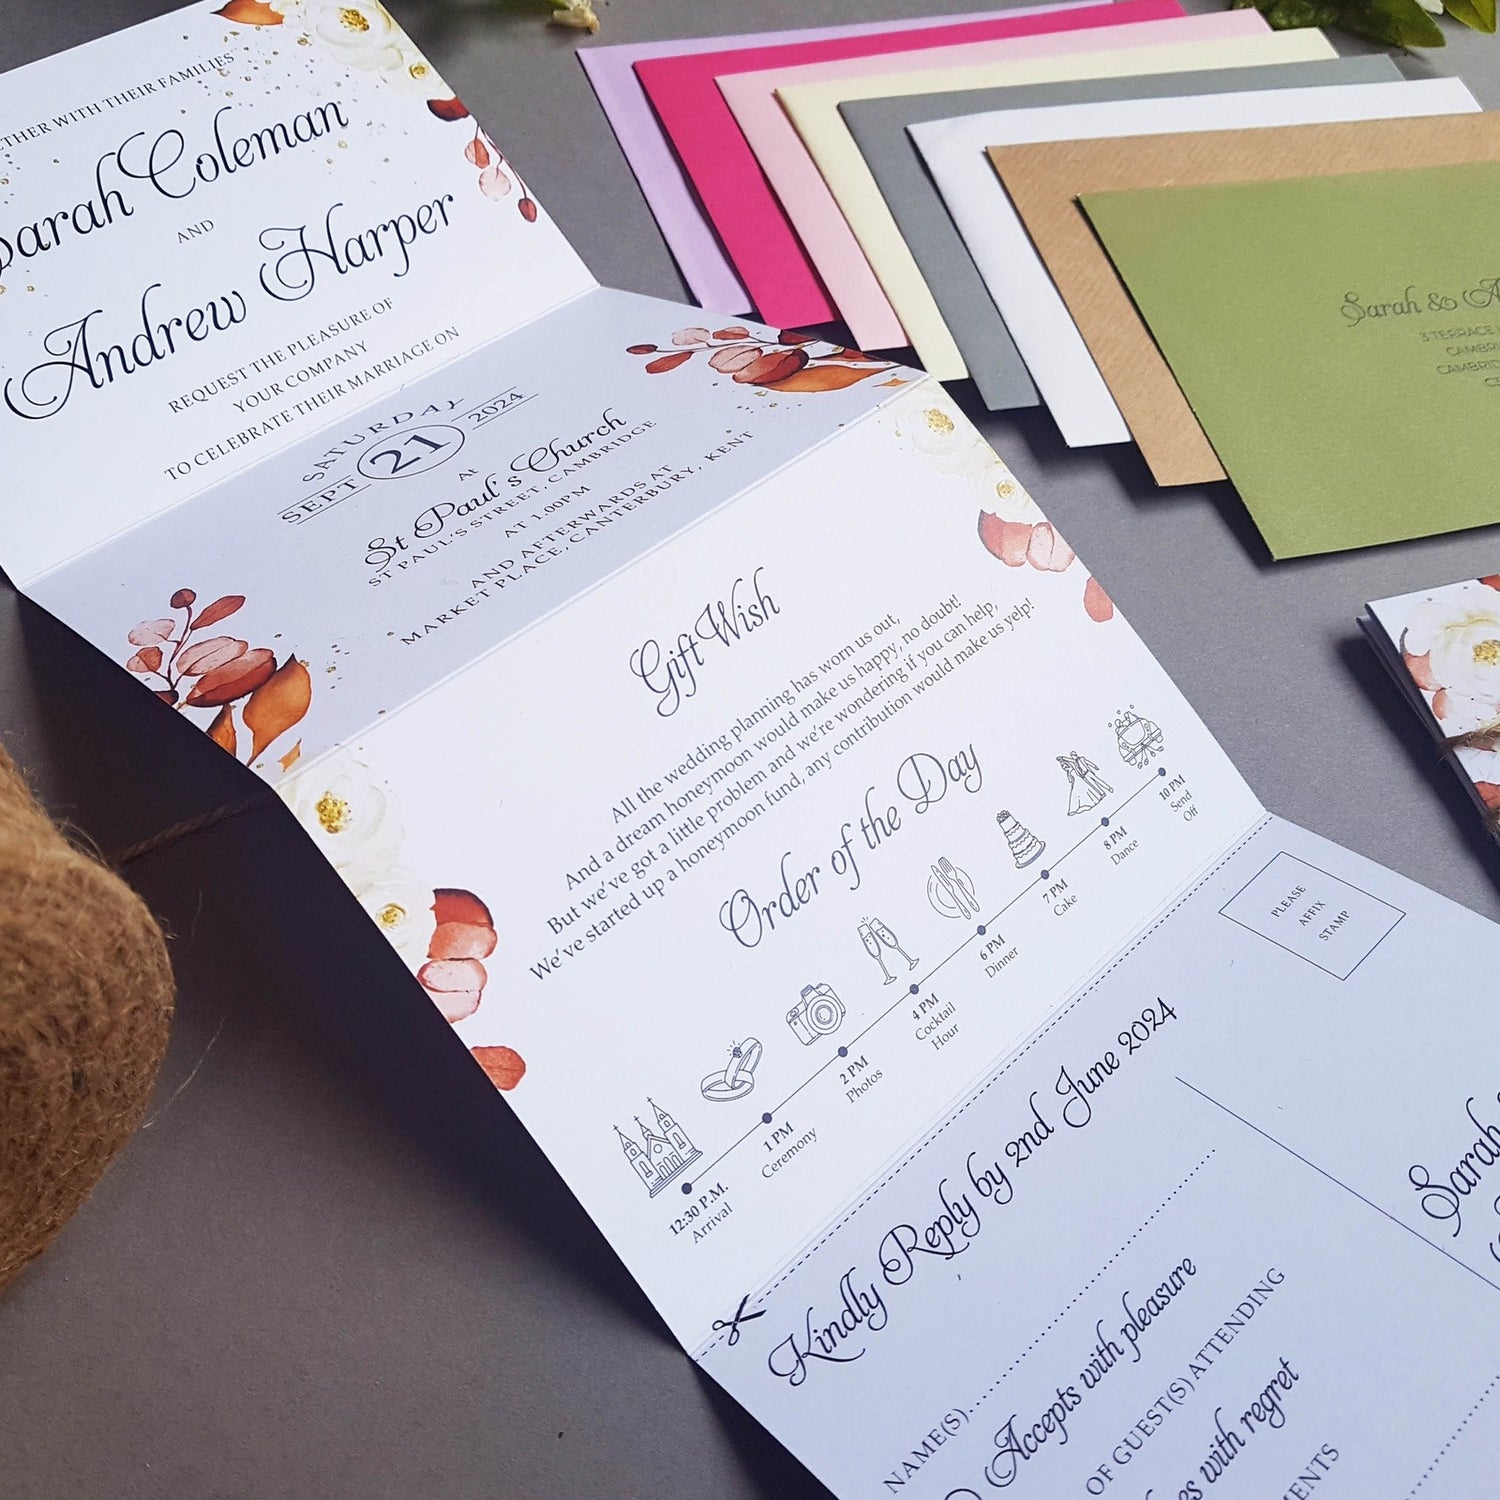 WITH THEIR FAMILIES
Sarah Coleman
AND
Andrew Harper
REQUEST THE PLEASURE OF
YOUR COMPANY
TO CELEBRATE THEIR MARRIAGE ON
SATURDAY
SEPT 21 2024
At
St Paul's Church
ST PAUL'S STREET, CAMBRIDGE
AT 1.00PM
AND AFTERWARDS AT
MARKET PLACE, CANTERBURY, KENT
Gift Wish
All the wedding planning has worn us out,
And a dream honeymoon would make us happy, no doubt!
But we've got a little problem and we're wondering if you can help,
We've started up a honeymoon fund, any contribution would make us yelp!
Order of the Day
12:30 P.M.
Arrival
1 PM
Ceremony
2 PM
Photos
4 PM
Cocktail
Hour
6 PM
Dinner
7 PM
Cake
8 PM
Dance
10 PM
Send
Off
PLEASE
AFFIX
STAMP
Kindly Reply by 2nd June 2024
NAME(S)
Accepts with pleasure
OF GUEST(S) ATTENDING
with regret
Sarah
Sarah &
3 TERRACE